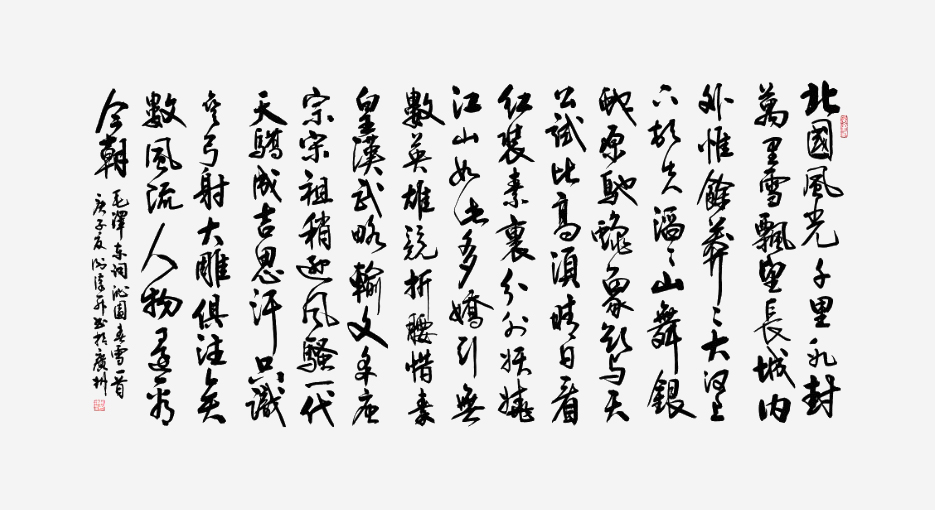 北國風光千里冰封
萬里雪飄望長城内
外惟餘莽〻大河上
下頓失滔〻山舞銀
蛇原馳蠟象欲與天
公試比高須晴日看
红裝素裹分外妖嬈
江山如此多嬌引無
數英雄競折腰惜秦
皇漢武略輸文采唐
宗宋祖稍遜风騷一代
天驕成吉思汗只識
彎弓射大雕俱往矣
數風流人物還看
今朝
毛澤东词沁園春雪一首
庚子夏 書於廣州